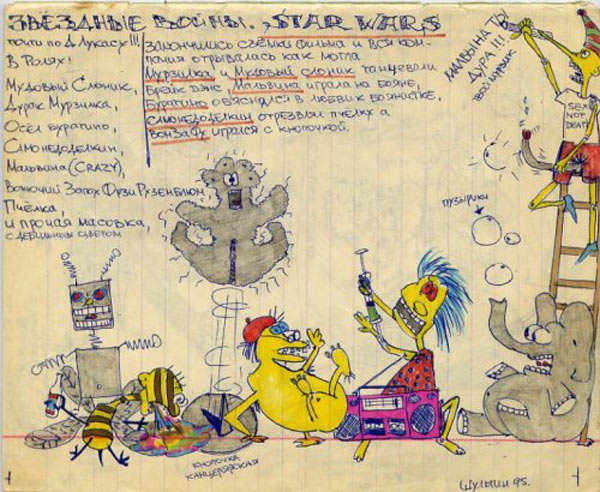 ЗВЁЗДНЫЕ ВОЙНЫ. STAR WARS
ПОЧТИ ПО Д. ЛУКАСУ!!!
В РОЛЯХ:
МУДОВЫЙ СЛОНИК,
ДУРАК МУРЗИЛКА,
ОСЁЛ БУРАТИНО,
СИМОНЕДОДЕЛКИН,
МАЛЬВИНА (CRAZY),
ВОНЮЧИЙ ЗАПОХ ФУЗИ РУЗЕНБЛЮМ
ПЧЁЛКА,
И ПРОЧАЯ МАСОВКА,
С ДЕБИЛЬНЫМ ЦВЕТОМ.
ЗАКОНЧИЛИСЬ СЪЁМКИ ФИЛЬМА И ВСЯ КОМ-
ПАНИЯ ОТРЫВАЛАСЬ КАК МОГЛА
МУРЗИЛКА И МУДОВЫЙ СЛОНИК ТАНЦЕВАЛИ
БРЕЙК ДЭНС, МАЛЬВИНА ИГРАЛА НА БОЯНЕ,
БУРАТИНО ОБЪЯСНЯЛСЯ В ЛЮБВИ К БОЯНИСТКЕ,
СИМОНЕДОДЕЛКИН ОТРЕЗВЛЯЛ ПЧЁЛКУ А
ВОНЗАФУ ИГРАЛСЯ С КНОПОЧКОЙ.
МАЛЬВЫНА ТЫ
ДУРА!!!
SEX
NOT
DEATH
ПУЗЫРИКИ
КНОПОЧКА
КАНЦЕЛЯРСКАЯ
ШУЛЬГИН 95.